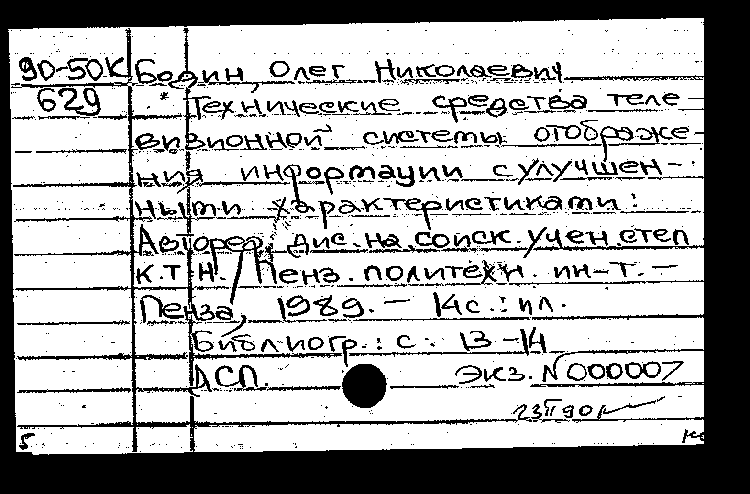 90-50К Бодин, Олег Николаевич
629 Технические средства теле-
визионной системы отображе-
ния информации с улучшен-
ными характеристиками:
Автореф. дис. на соиск. учен. степ
к.т.н. / Пенз. политехн. ин-т. –
Пенза, 1989. – 14с.: ил.
Библиогр.: с. 13-14
ДСП. Экз. N 000007
23 II 90г
5